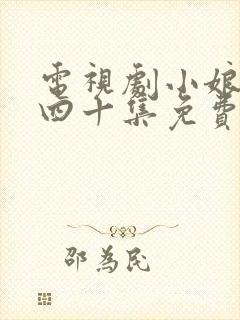 電視劇小娘
四十集免費
邵為民